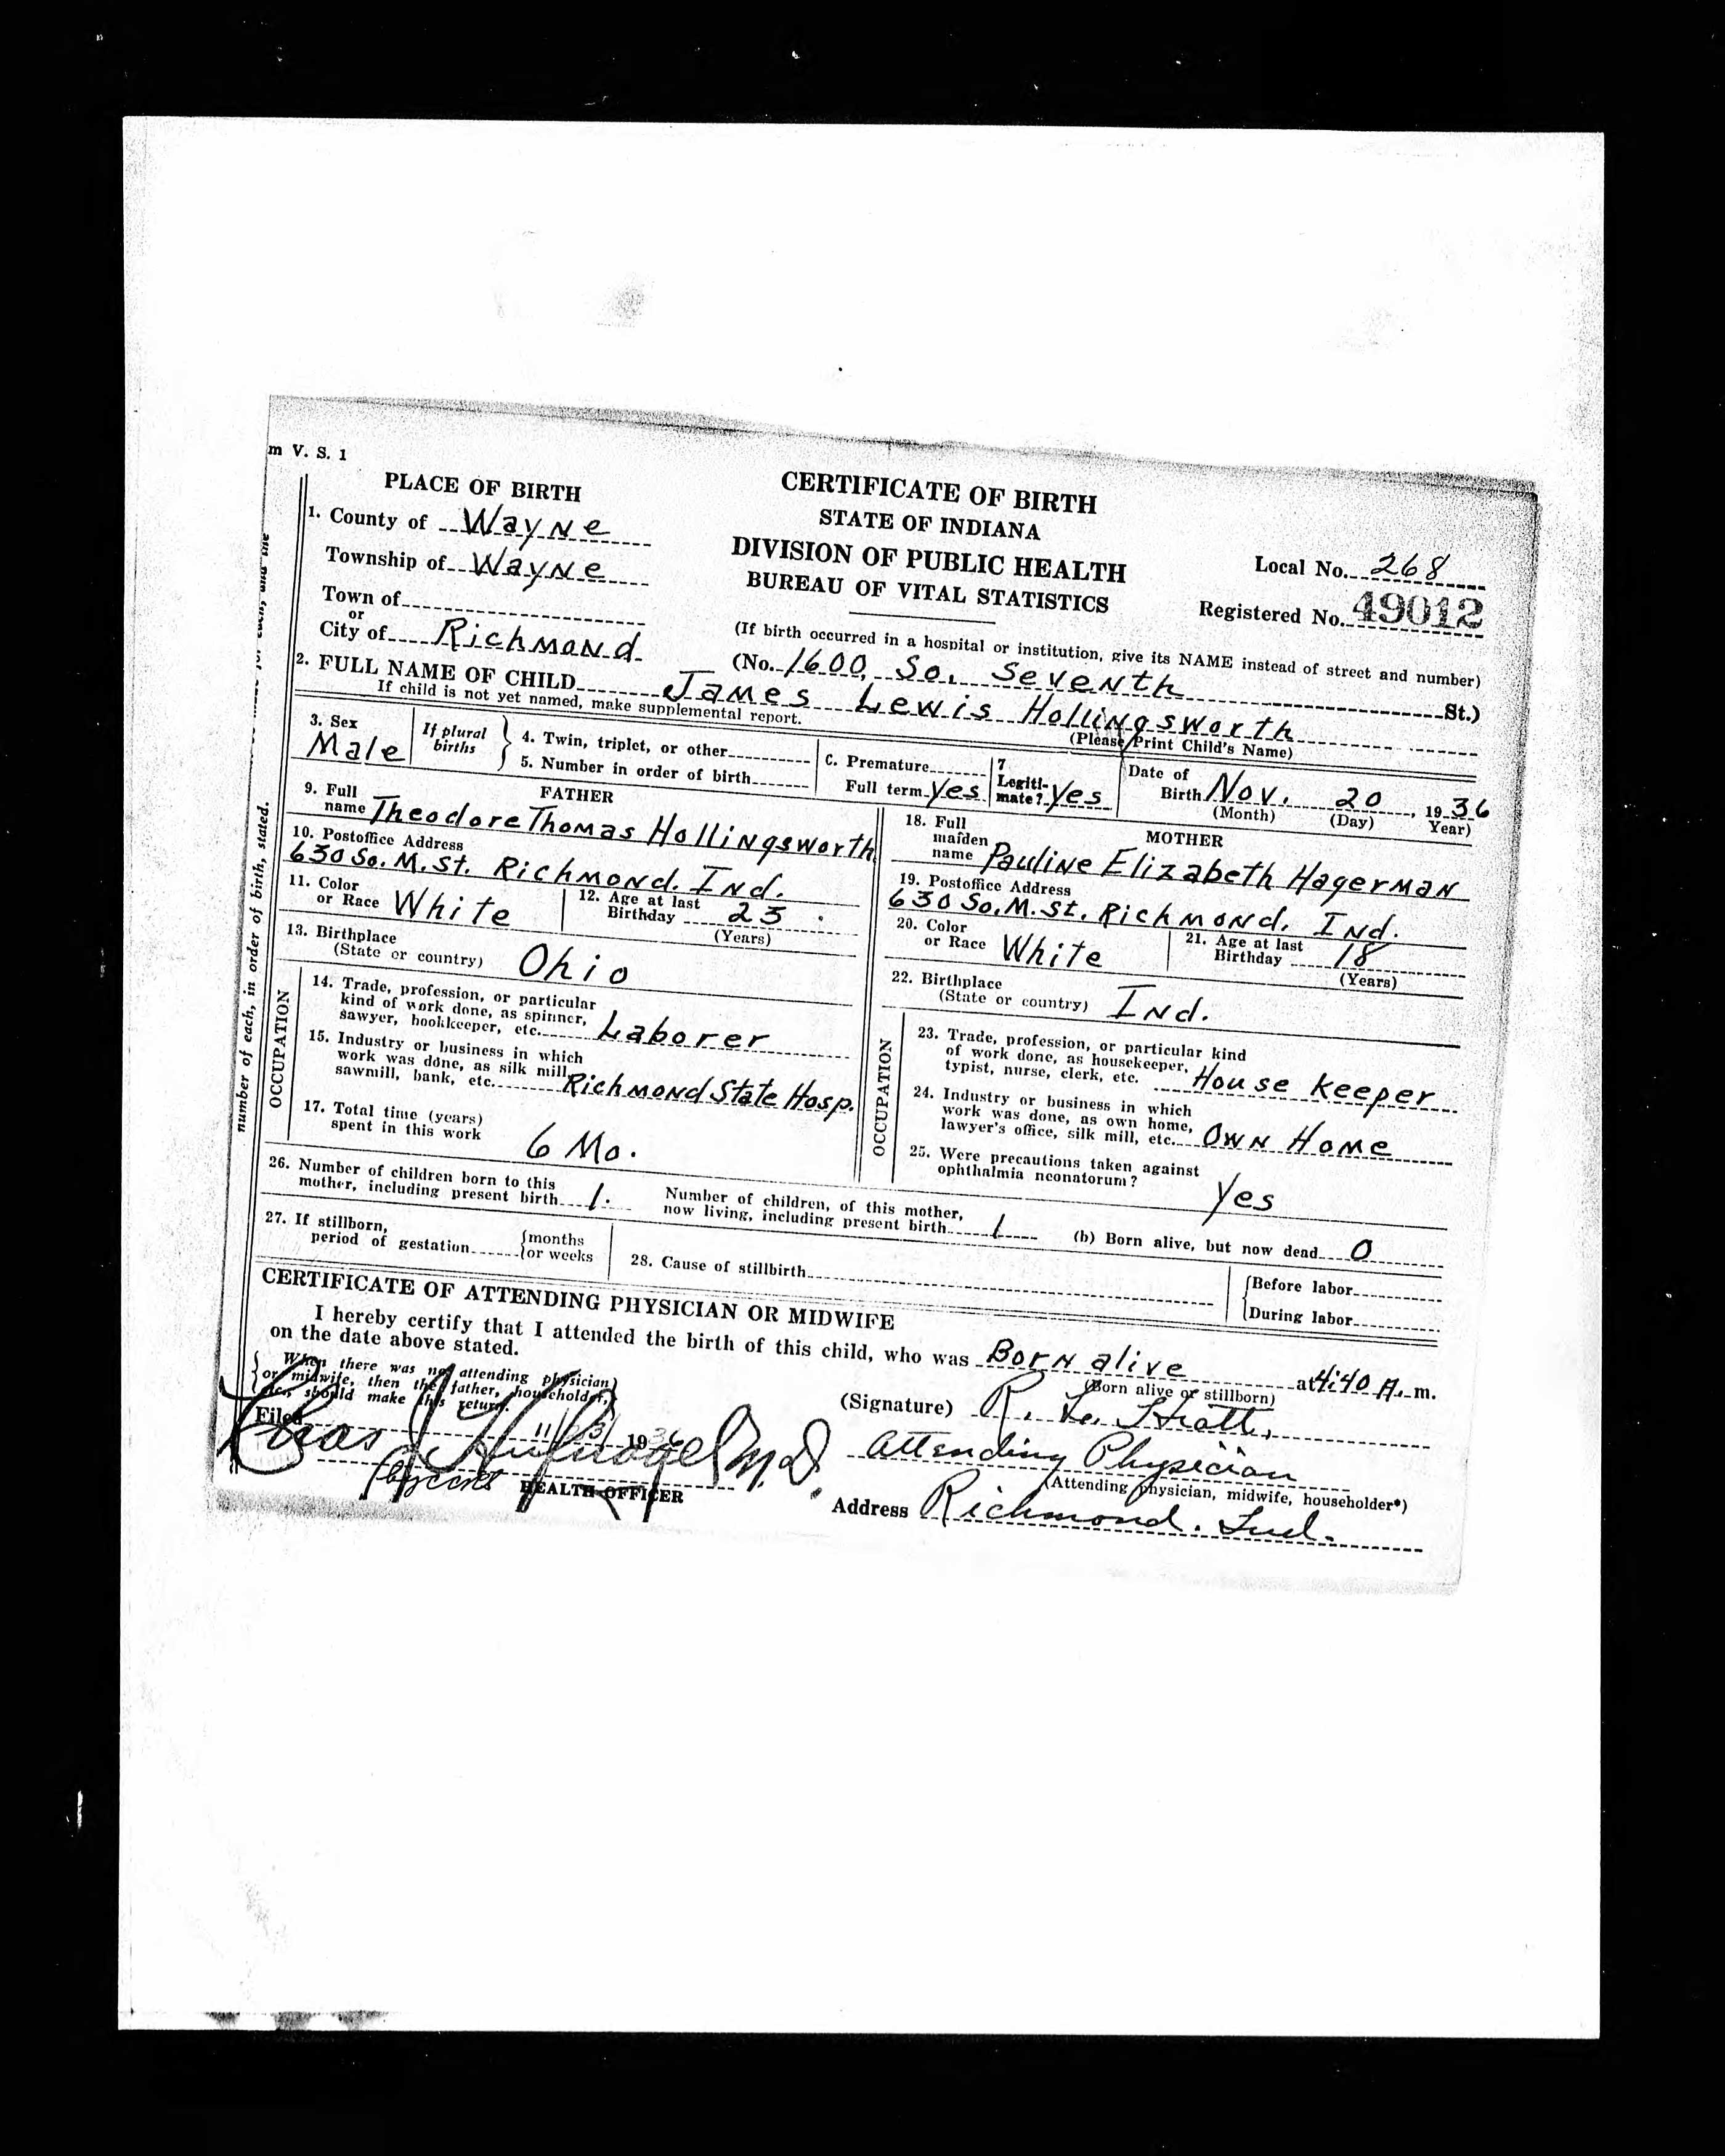 m V. S. 1
PLACE OF BIRTH
1. County of Wayne
Township of Wayne
Town of
or
City of Richmond
CERTIFICATE OF BIRTH
STATE OF INDIANA
DIVISION OF PUBLIC HEALTH
BUREAU OF VITAL STATISTICS
Local No. 268
Registered No. 49012
(If birth occurred in a hospital or institution, give its NAME instead of street and number)
(No. 1600, So. Seventh St.)
2. FULL NAME OF CHILD James Lewis Hollingsworth
If child is not yet named, make supplemental report.
(Please Print Child's Name)
3. Sex
Male
If plural
births
4. Twin, triplet, or other
5. Number in order of birth
C. Premature
Full term Yes
7
Legiti-
mate? Yes
Date of
Birth Nov. 20, 1936
(Month) (Day) Year)
FATHER
9. Full
name Theodore Thomas Hollingsworth
10. Postoffice Address
630 So. M. St. Richmond. Ind.
11. Color
or Race White
12. Age at last
Birthday 23
(Years)
13. Birthplace
(State or country) Ohio
OCCUPATION
14. Trade, profession, or particular
kind of work done, as spinner,
sawyer, bookkeeper, etc. Laborer
15. Industry or business in which
work was done, as silk mill,
sawmill, bank, etc. Richmond State Hosp.
17. Total time (years)
spent in this work 6 Mo.
MOTHER
18. Full
maiden
name Pauline Elizabeth Hagerman
19. Postoffice Address
630 So. M. St. Richmond, Ind.
20. Color
or Race White
21. Age at last
Birthday 18
(Years)
22. Birthplace
(State or country) Ind.
OCCUPATION
23. Trade, profession, or particular kind
of work done, as housekeeper,
typist, nurse, clerk, etc. House keeper
24. Industry or business in which
work was done, as own home,
lawyer's office, silk mill, etc. Own Home
25. Were precautions taken against
ophthalmia neonatorum? Yes
26. Number of children born to this
mother, including present birth 1.
Number of children, of this mother,
now living, including present birth 1
(b) Born alive, but now dead 0
27. If stillborn,
period of gestation
months
or weeks
28. Cause of stillbirth
Before labor
During labor
CERTIFICATE OF ATTENDING PHYSICIAN OR MIDWIFE
I hereby certify that I attended the birth of this child, who was Born alive at 4:40 A. m.
on the date above stated.
(Born alive or stillborn)
When there was no attending physician
or midwife, then the father, householder,
etc., should make this return.
(Signature) R. L.
Attending Physician
(Attending physician, midwife, householder*)
Address Richmond. Ind.
Filed 1936
M.D.
HEALTH OFFICER
number of each, in order of birth, stated.